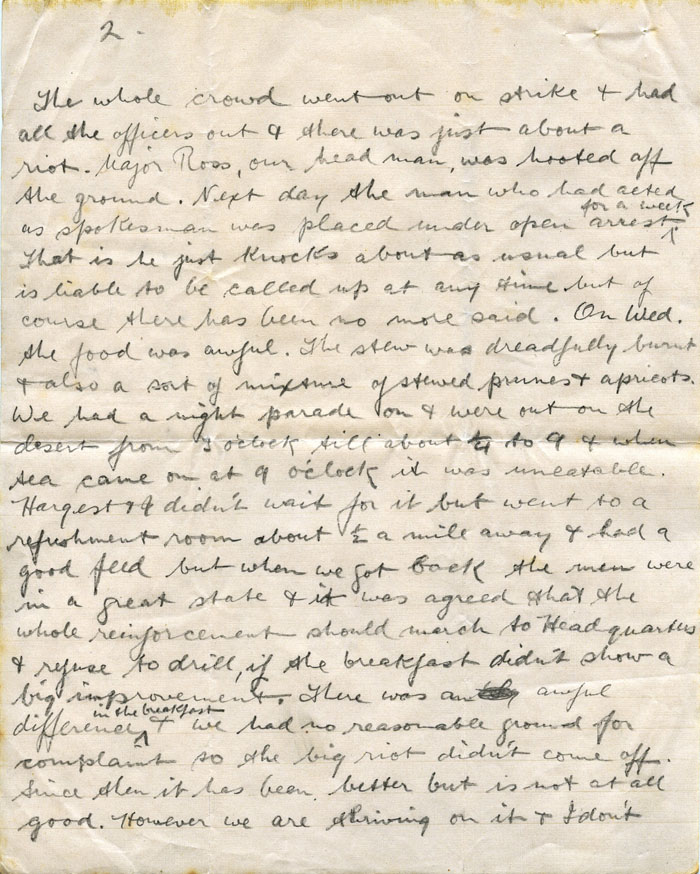 2.
The whole crowd went out on strike & had
all the officers out & there was just about a
riot. Major Ross, our head man, was hooted off
the ground. Next day the man who had acted
for a week
as spokesman was placed under open arrest
That is he just knocks about as usual but
is liable to be called up at any time but of
course there has been no more said. On Wed.
the food was awful. The stew was dreadfully burnt
& also a sort of mixture of stewed prunes & apricots.
We had a night parade on & were out on the
desert from o'clock till about to 9 & when
tea came on at 9 o'clock it was uneatable.
Hargest & I didn't wait for it but went to a
refreshment room about ½ a mile away & had a
good feed but when we got back the men were
in a great state & it was agreed that the
whole reinforcement should march to Headquarters
& refuse to drill, if the breakfast didn't show a
big improvement. There was an awful
in the breakfast
difference & we had no reasonable ground for
complaint so the big riot didn't come off.
Since then it has been better but is not at all
good. However we are thriving on it & I don't